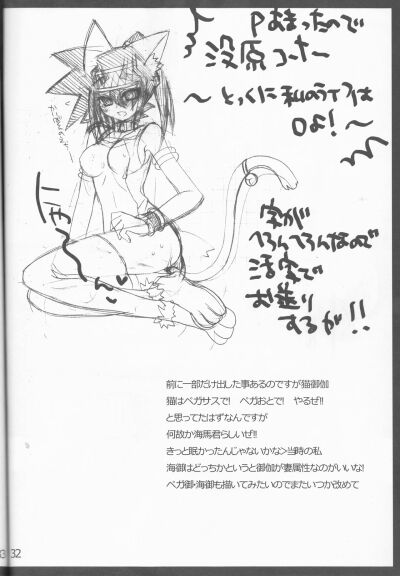 Pあまったので
没原コーナー
～とっくに私のライフは
0よ！～
字が
へろんへろんなので
活字で
お送り
するが!!
前に一部だけ出した事あるのですが猫御伽
猫はペガサスで!　ペガおとで!　やるぜ!!
と思ってたはずなんですが
何故か海馬君らしいぜ!!
きっと眠かったんじゃないかな>当時の私
海御はどっちかというと御伽が妻属性なのがいいな!
ペガ御・海御も描いてみたいのでまたいつか改めて
32